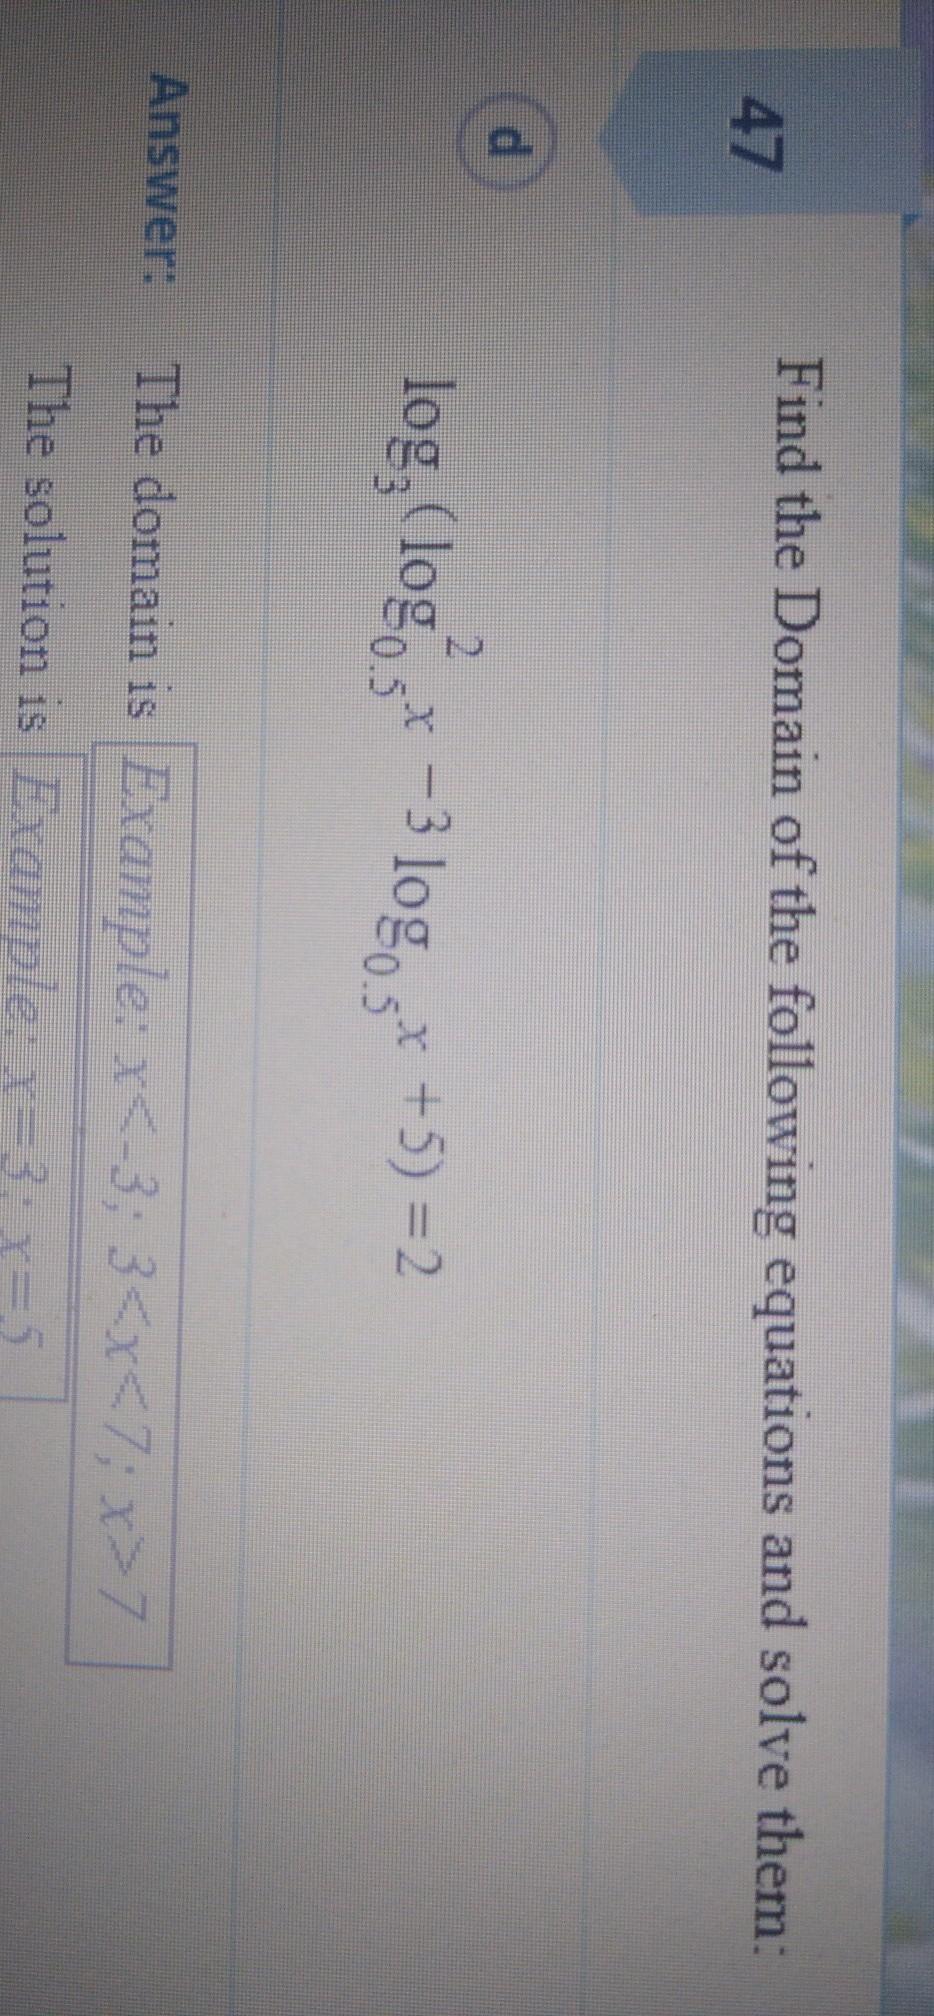 47 Find the Domain of the following equations and solve them:
d
log₃(log²₀.₅x −3 log₀.₅x +5) =2
Answer: The domain is Example: x<-3; 3<x<7; x>7
The solution is Example: x=3; x=5